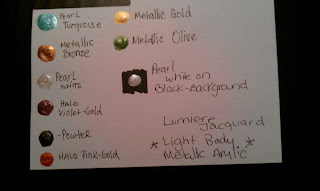 Pearl
Turquoise
Metallic
Bronze
Pearl
White
Halo
Violet-Gold
-Pewter
Halo Pink-Gold
Metallic Gold
Metallic Olive
Pearl
white on
Black-Background
Lumiere
Jacquard
* Light Body *
Metallic Arylic